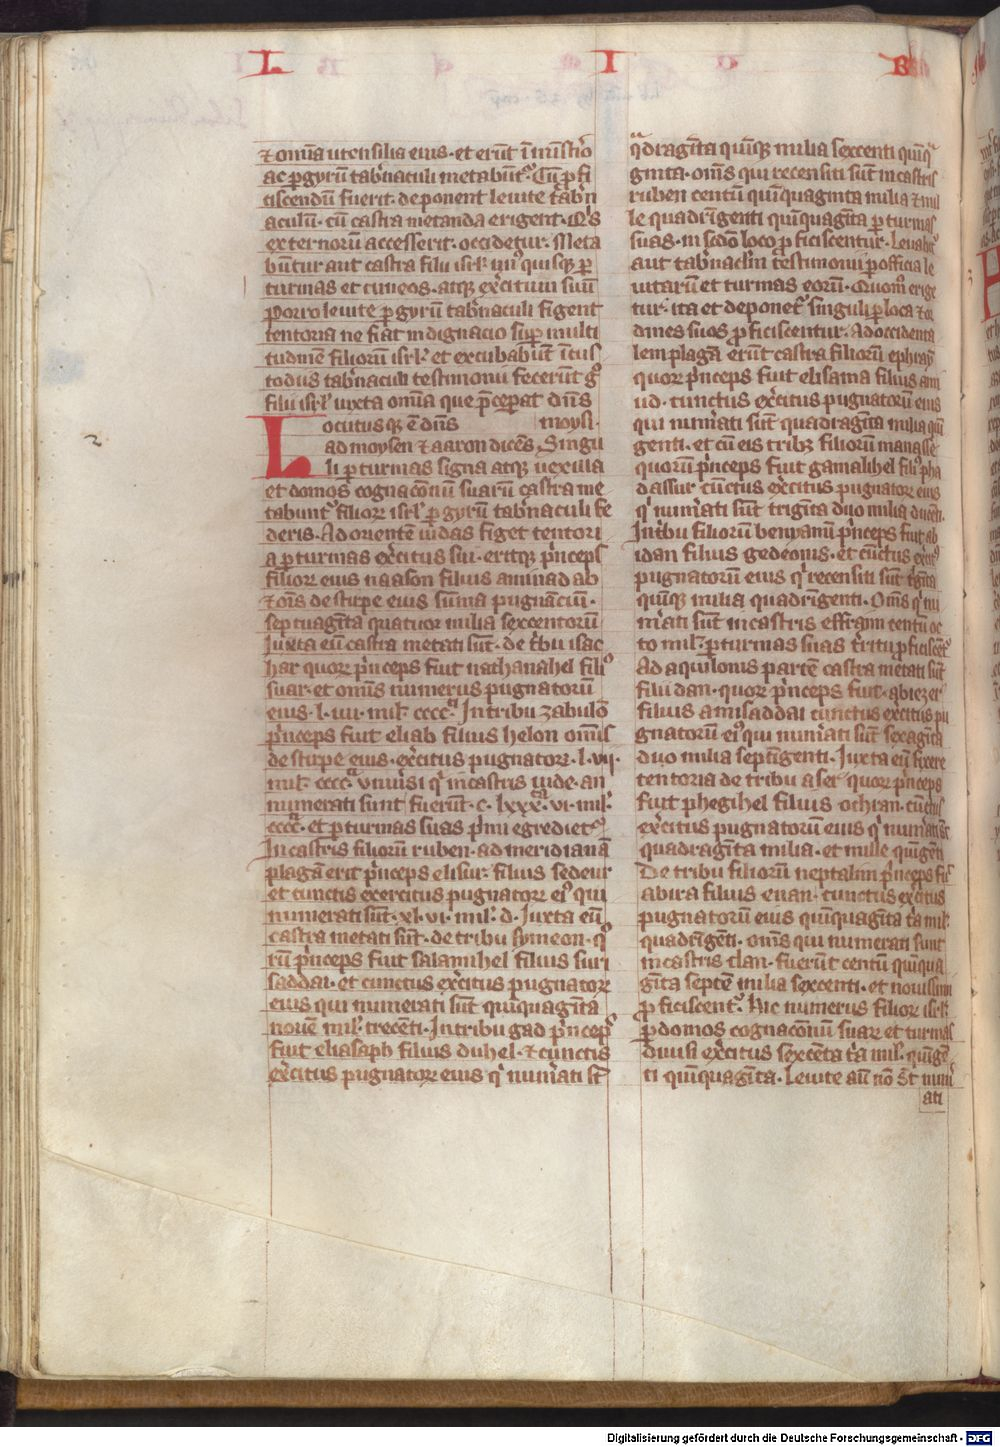 L I B
⁊ om̄ia utensilia eius · et erūt ī minist̾io
ac ꝑ gyrū tab̾naculi metabūt᷑. Cū ꝓfi
ciscendū fuerit · deponent leuite tab̾n
aculū · cū castra metanda erigent · Q̾s
externorū accesserit · occidetur · Meta
būtur aut castra filii isrl̾ un̾ quisq̨ ꝑ
turmas et cuneos · atq̨ ex̾citum suū
Porro leuite ꝑ gyrū tab̾naculi figent
tentoria ne fiat indignacio sup̄ multi
tudinē filiorū isrl̾ et excubabūt ī cus
todiis tab̾naculi testimonii fecerūt g̾
filii isrl̾ iuxta om̄ia que p̄cep̄at dn̄s
Locutus q̨ ē dn̄s moysi ·
ad moysen ⁊ aaron dicēs · Singu
li ꝑ turmas signa atq̨ uexilla
et domos cognac̄onū suarū castra me
tabunt᷑ filioꝝ isrl̾ ꝑ gyrū tab̾naculi fe
deris · Ad orientē iudas figet tentori
a ꝑ turmas ex̾citus sui · eritq̨ p̾nceps
filioꝝ eius naason filius aminadab
⁊ om̄s de stirpe eius sūma pugnāciū ·
septuagīta quatuor milia sexcentorū
Iuxta eū castra metati sūt · de t̾bu isac
har quoꝝ p̾nceps fuit nathanahel fili᷒
suar · et omīs numerus pugnatorū
eius · l · iiii · mil᷑ cccc᷑ · In tribu zabulō
p̾nceps fuit eliab filius helon omīs
de stirpe eius · ex̾citus pugnatoꝝ · l · vii ·
mil᷑ · cccc᷑ · vniu̾si q̾ in castris iude · an
numerati sunt fuerūt · c · lxxx᷑ · vi · mil᷑ ·
cccc᷑ · et ꝑ turmas suas p̾mi egrediet᷑
In castris filiorū ruben · ad meridianā
plagā erit p̾nceps elisur · filius sedeur
et cunctis exercitus pugnatoꝝ ei᷒ qui
numerati sūt · xl · vi · mil᷑ · d · Iuxta eū
castra metati sūt · de tribu symeon · q̾
rū p̾nceps fuit salamihel filius suri
saddai · et cunctus ex̾citus pugnatoꝝ
eius qui numerati sūt quīquagīta
nouē mil᷑ trecēti · In tribu gad p̾nceps
fuit eliasaph filius duhel · ⁊ cunctis
ex̾citus pugnatoꝝ eius q̾ num̾ati sт̄
q̾dragīta quīq̨ milia sexcenti quīq̾
ginta · om̄s qui recensiti sūt in castris
ruben centū quīquaginta milia ⁊ mil
le quadrīgenti quīquagīta ꝑ turmas
suas · in sc̄do loco ꝓficiscentur · Leuabit᷑
aut tab̾nac̄lm testimonii ꝑ officia le
uitarū et turmas eorū · Quom̄ erige
tur · ita et deponet᷑ singuli ꝑ loca ⁊ or
dines suos ꝓficiscentur · Ad occidenta
lem plagā erūt castra filiorū ephraym
quoꝝ p̾nceps fuit elisama filius ami
ud · cunctus ex̾citus pugnatorū eius
qui num̾ati sūt quadragīta milia quī
genti · et cū eis trib᷒ filiorū manasse
quorū p̾nceps fuit gamalihel fili᷒ pha
dassur cūctus ex̾citus pugnatoꝝ eius
q̾ num̾ati sūt trigīta duo milia ducēti ·
In t̾bu filiorū benyamī p̾nceps fuit ab
idan filius gedeonis · et cūctus ex̾cit᷒
pugnatorū eius q̾ recensiti sūt t̾gīta
quīq̨ milia quadrīgenti · Om̄s q̾ nu
m̾ati sūt in castris effraim centū oc
to mil᷑ · ꝑ turmas suas t̾cii ꝓficiscēt᷑
Ad aquilonis partē castra metati sūt
filii dan · quoꝝ p̾nceps fuit · abiezer
filius amisaddai cunctus ex̾citus pu
gnatorū ei᷒ qui num̾ati sūt sexagīta
duo milia septīgenti · Iuxta eū fixere
tentoria de tribu aser · quoꝝ p̾nceps
fuit phegihel filius ochran · cūctus
ex̾citus pugnatorū eius q̾ num̾ati sт̄
quadragīta milia · et mille quīgēti
De tribu filiorū neptalim p̾nceps fu᷑
ahira filius enan · cunctus ex̾citus
pugnatorū eius quīquagīta t̾a mil᷑ ·
quadrīgēti · om̄s qui numerati sunt
in castris dan · fuerūt centū quīqua
gīta septē milia sexcenti · et nouissimi
ꝓficiscent᷑ · Hic numerus filioꝝ isrl̾
ꝑ domos cognac̄onū suaꝝ et turmas
diuisi ex̾citus sexcēta t̾a mil᷑ · quīgē
ti quīquagīta · Leuite aū nō sт̄ num̾
ati
2
Digitalisierung gefördert durch die Deutsche Forschungsgemeinschaft - DFG